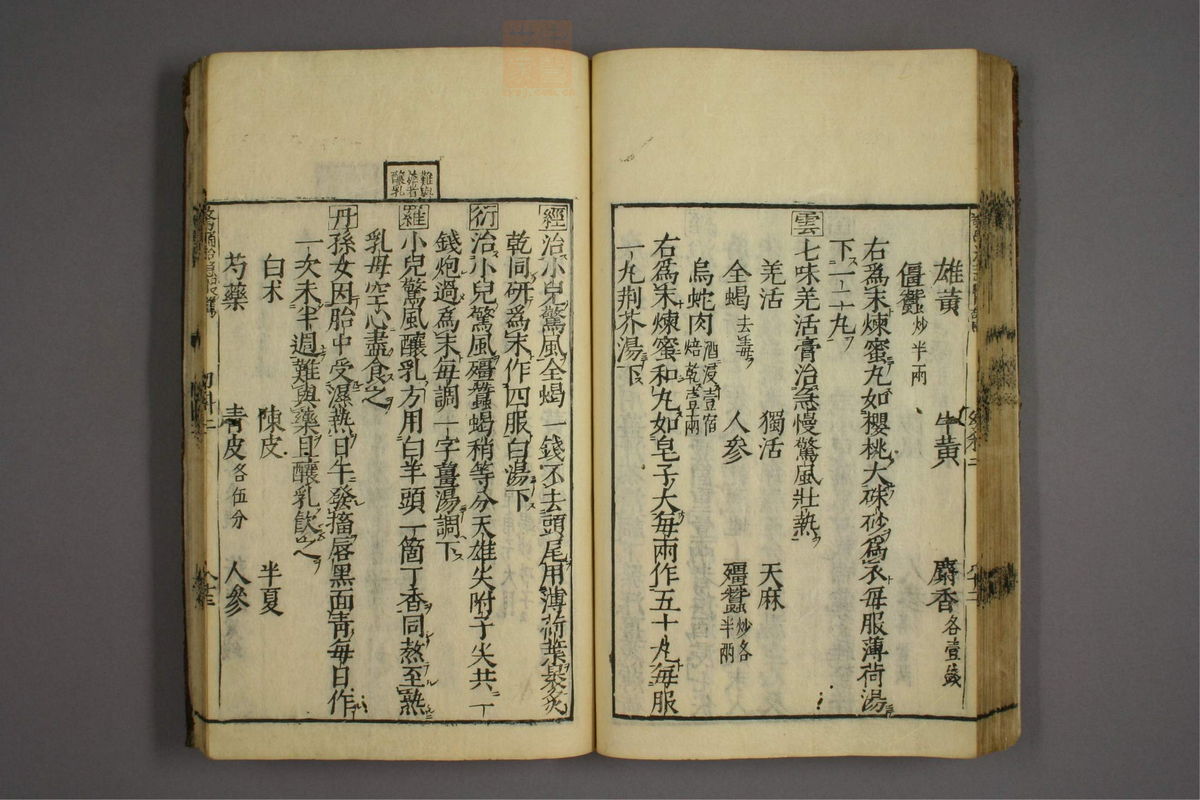 雄黃 牛黃 麝香各壹錢
僵蠶炒半兩
右爲末煉蜜丸如櫻桃大硃砂爲衣每服薄荷湯
下一二十丸
雲七味羌活膏治急慢驚風壯熱
羌活 獨活 天麻
全蝎去毒 人參 殭蠶炒各半兩
烏蛇肉酒浸壹宿焙乾壹兩
右爲末煉蜜和丸如皂子大每兩作五十丸每服
一丸荆芥湯下
難與藥者釀乳
經治小兒驚風全蝎一錢不去頭尾用薄荷葉裹炙
乾同研爲末作四服白湯下
衍治小兒驚風殭蠶蝎稍等分天雄尖附子尖共一
錢炮過爲末每調一字薑湯調下
羅小兒驚風釀乳方用白羊頭一箇丁香同熬至熟
乳母空心盡食之
丹孫女因胎中受濕熱日午發搐唇黑面靑每日作
一次未半週難與藥且釀乳飮之
白朮 陳皮 半夏
芍藥 靑皮各伍分 人參